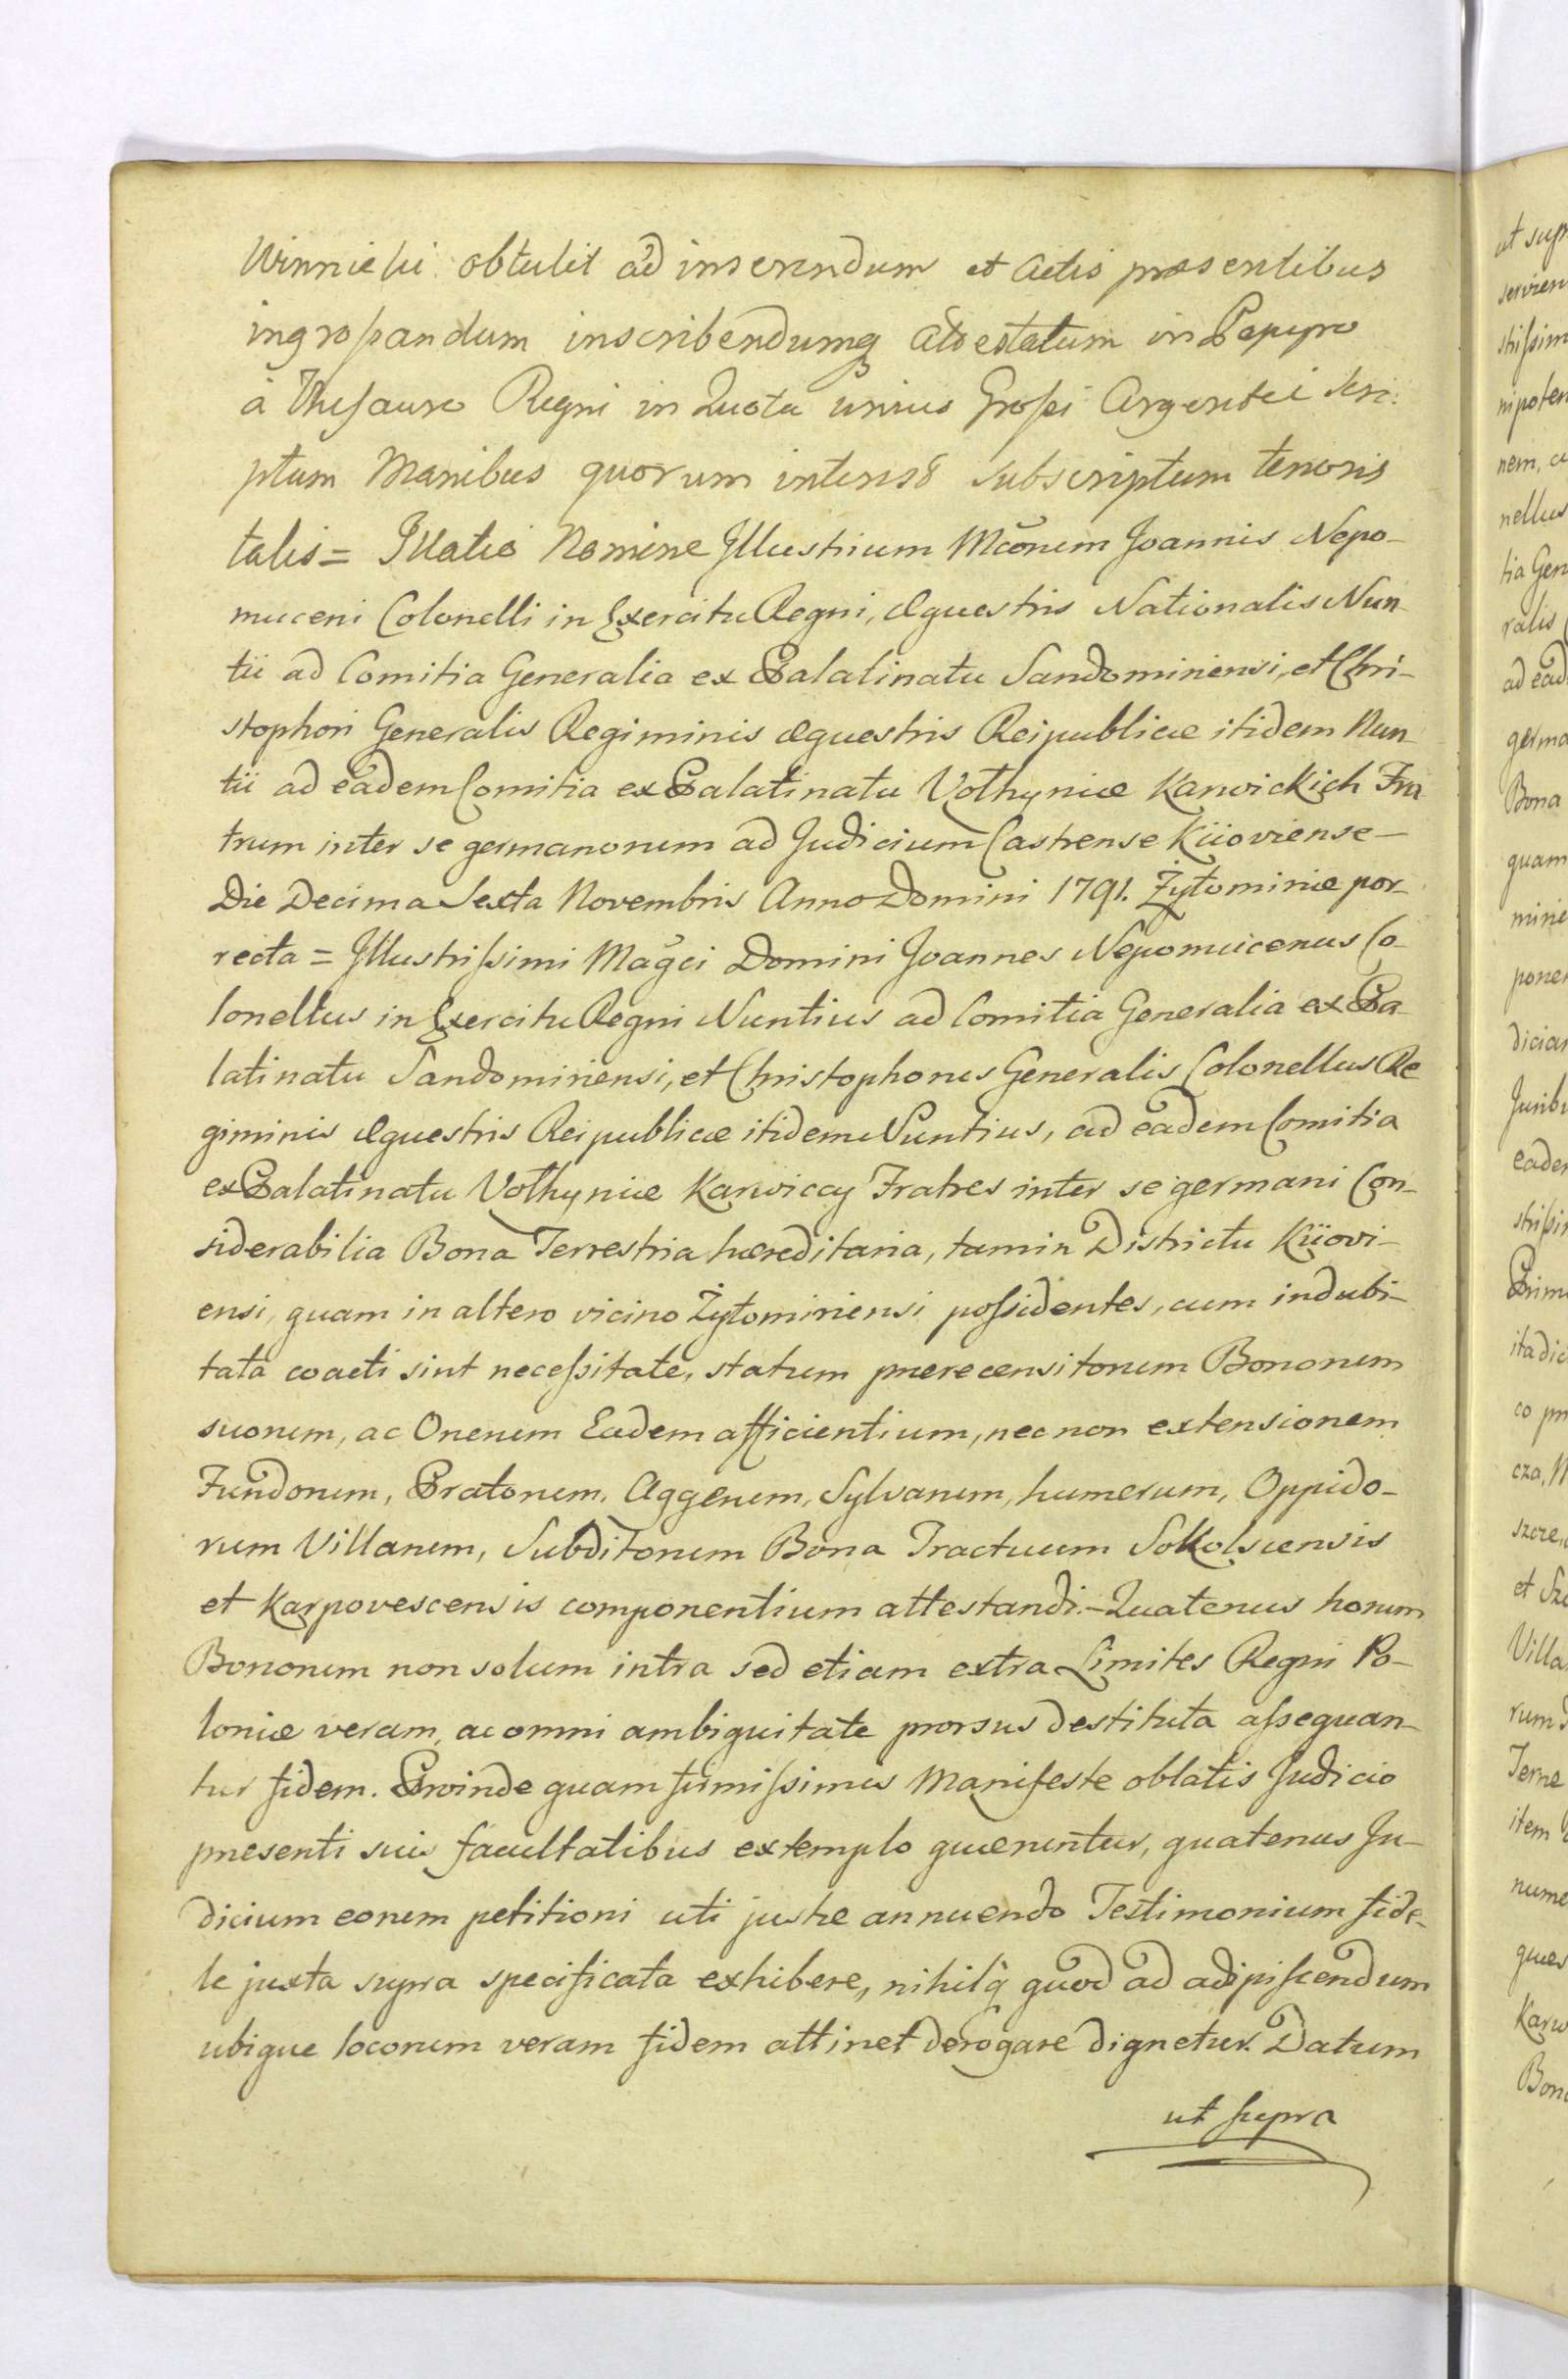 Winnicki obtulit ad inserendum et Actis præsentibus
ingroſsandum inscribendumq Attestatum in Papyro
à Thesauro Regni in Quota unius Groſsi Argentei scri:
ptum Manibus quorum interest subscriptum tenoris
talis = Illatio Nomine Illustrium Mcorum Joannis Nepo-
muceni Colonelli in Exercitu Regni, Æquestris Nationalis Nun-
tii ad Comitia Generalia ex Palatinatu Sandomiriensi, et Chri-
stophori Generalis Regiminis Æquestris Reipublicæ itidem Nun-
tii ad eadem Comitia ex Palatinatu Volhyniæ Karwickich Fra-
trum inter se germanorum ad Judicium Castrense Kiioviense-
Die Decima Sexta Novembris Anno Domini 1791. Żytomiriæ por-
recta = Illustriſsimi Magci Domini Joannes Nepomucenus Co-
lonellus in Exercitu Regni Nuntius ad Comitia Generalia ex Pa-
latinatu Sandomiriensi, et Christophorus Generalis Colonellus Re
giminis Æquestris Reipublicæ itidem Nuntius, ad eadem Comitia
ex Palatinatu Volhyniæ Karwiccy Fratres inter se germani Con-
siderabilia Bona Terrestria hæreditaria, tam in Districtu Kiiovi-
ensi, quam in altero vicino Żytomiriensi poſsidentes, cum indubi-
tata coacti sint neceſsitate, statum prærecensitorum Bonorum
suorum, ac Onerum Eadem afficientium, nec non extensionem
Fundorum, Pratorum, Aggerum, Sylvarum, humerum, Oppido-
rum Villarum, Subditorum Bona Tractuum Sokolscensis
et Karpovescensis componentium attestandi.- Quatenus horum
Bonorum non solum intra sed etiam extra Limites Regni Po-
loniæ veram, ac omni ambiguitate prorsus destituta aſsequan-
tur fidem. Proinde quam firmiſsimis Manifeste oblatis Judicio
præsenti suis facultatibus extemplo quæruntur, quatenus Ju-
dicium eorum petitioni uti justæ annuendo Testimonium fide-
le juxta supra specificata exhibere, nihilq quod ad adipiſcendum
ubique locorum veram fidem attinet derogare dignetur. Datum
ut supra